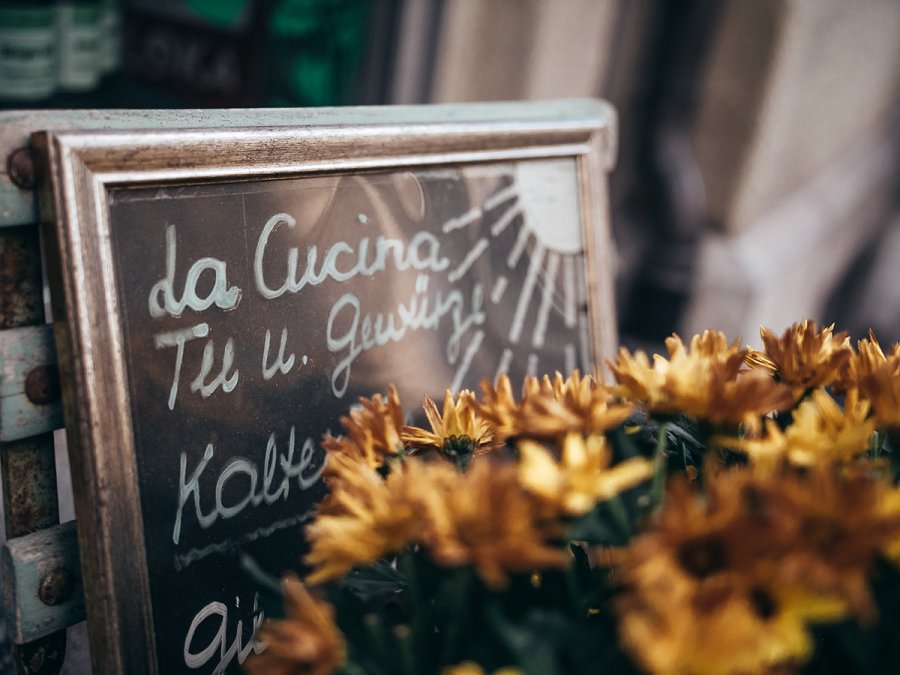 da Cucina
Tee u. Gewürze
Kalte